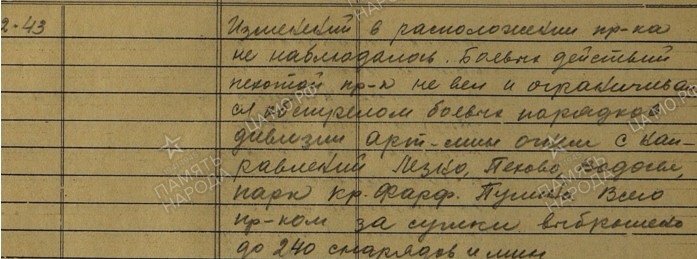 2-43 Изменений в расположении пр-ка
не наблюдалось. Боевых действий
пехотой пр-к не вел и ограничивал
ся обстрелом боевых порядков
дивизии арт-мин огнем с нап-
равлений Лезно, Пехово,
парк кр. Фарф. Всего
пр-ком за сутки выброшено
до 240 снарядов и мин
ПАМЯТЬ
НАРОДА
ЦАМО.РФ
ПАМЯТЬ
НАРОДА
ЦАМО.РФ